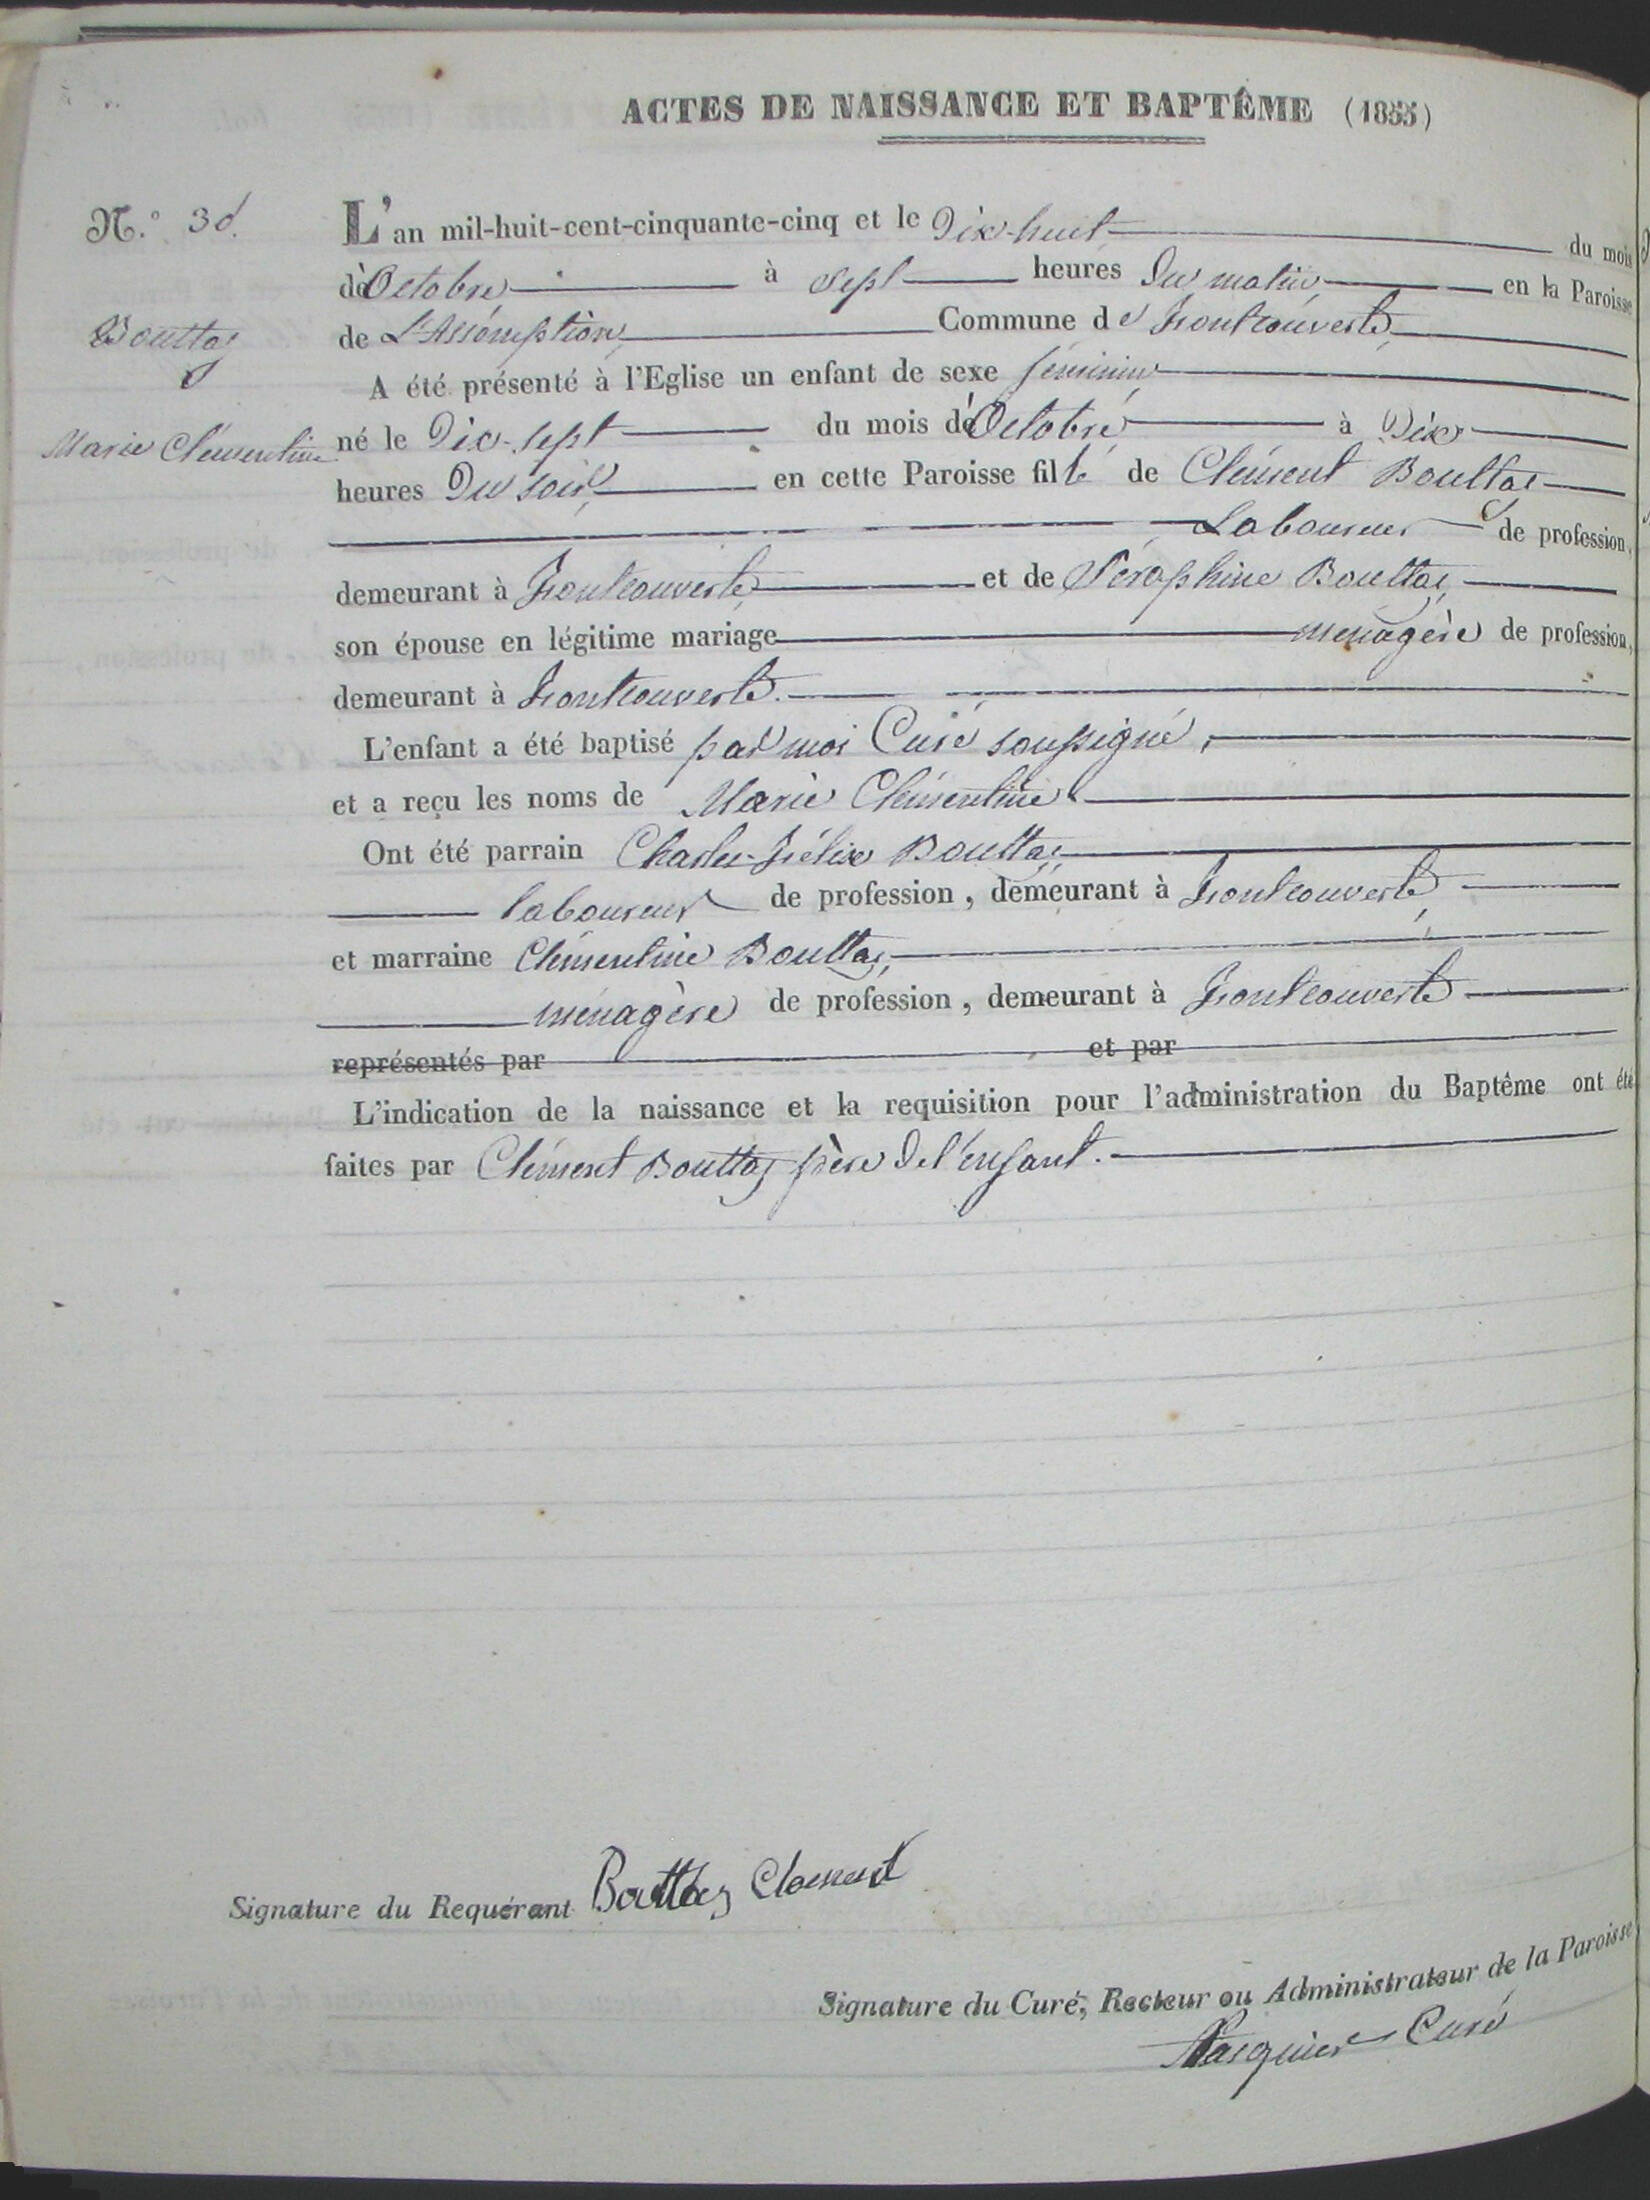 ACTES DE NAISSANCE ET BAPTÊME (1855)
N.°
Bouttaz
Marie Clémentine
L'an mil-huit-cent-cinquante-cinq et le Dix-huit du mois
d'Octobre à sept heures Du matin en la Paroisse
de L'Assomption, Commune de Frontcouverte,
A été présenté à l'Eglise un enfant de sexe féminin
né le Dix-sept du mois d'Octobre à Dix
heures Du soir, en cette Paroisse fille de Clément Bouttaz
Laboureur de profession,
demeurant à Frontcouverte, et de Séraphine Bouttaz,
son épouse en légitime mariage ménagère de profession,
demeurant à Frontcouverte.
L'enfant a été baptisé par moi Curé soussigné,
et a reçu les noms de Marie Clémentine
Ont été parrain Charles-Félix Bouttaz,
laboureur de profession, demeurant à Frontcouverte,
et marraine Clémentine Bouttaz,
ménagère de profession, demeurant à Frontcouverte
représentés par et par
L'indication de la naissance et la requisition pour l'administration du Baptême ont été
faites par Clément Bouttaz père de l'enfant.
Signature du Requérant Bouttaz Clement
Signature du Curé, Recteur ou Administrateur de la Paroisse
Curé